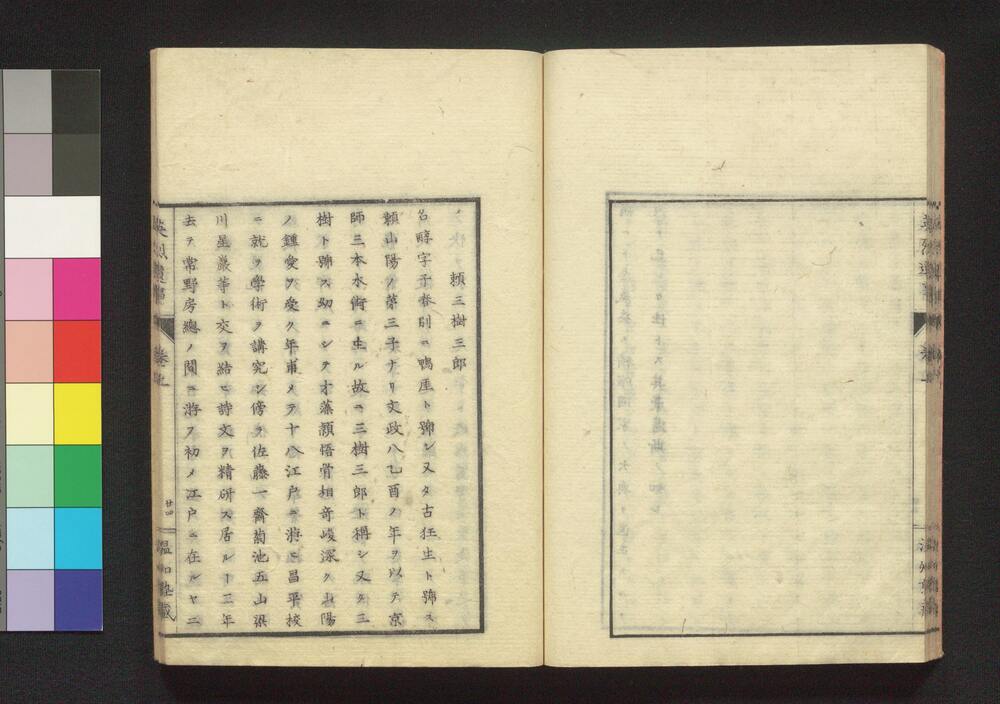 頼三樹三郎
名醇字子春別ニ鴨厓ト號シ又タ古狂生ト號ス
頼山陽ノ第三子ナリ文政八乙酉ノ年ヲ以テ京
師三本木術ニ生ル故ニ三樹三郎ト稱シ又タ三
樹ト號ス幼ニシテ才藻頴悟骨相奇峻深ク山陽
ノ鍾愛ヲ受ク年甫メテ十八江戸ニ游ヒ昌平校
ニ就テ學術ヲ講究シ傍ラ佐藤一齋菊池五山梁
川星巖等ト交ヲ結ヒ詩文ヲ精研ス居ルー二年
去テ常野房總ノ間ニ游フ初メ江戸ニ在ルヤ二
卷上
廿四